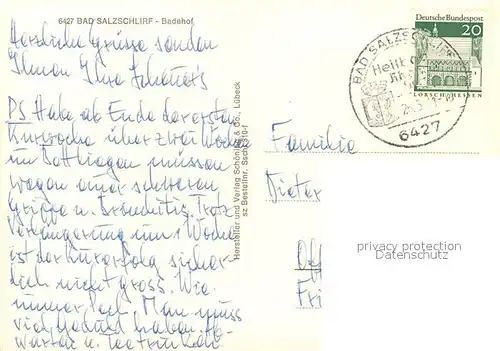 6427 BAD SALZSCHLIRF - Badehof
Herzliche Grüsse senden
Ihnen Ihre
PS. Habe ab Ende der ersten
Kurwoche über zwei Wochen
im Bett liegen müssen
wegen einer schweren
Grippe u. Bronchitis. Trotz
Verlängerung um 1 Woche
ist der Kurerfolg sicher-
lich nicht gross. Wie
immer Pech. Man muss
viel Geduld haben
warten u. Tee trinken
Hersteller und Verlag Schöning & Co., Lübeck
sz Bestellnr.
Deutsche Bundespost
20
LORSCH/HESSEN
BAD SALZSCHLIRF
6427
Familie
Dieter
privacy protection
Datenschutz